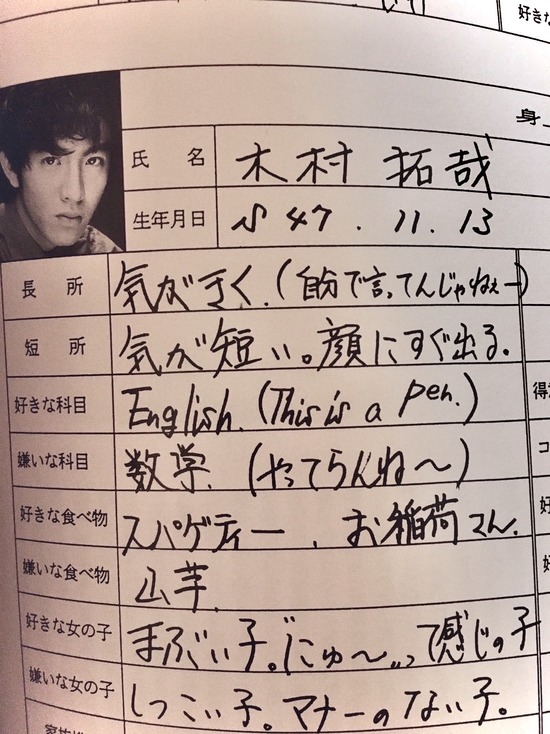 好き
身
氏 名 木村 拓哉
生年月日 S 47. 11. 13
長 所 気がきく.(自分で言ってんじゃねぇー)
短 所 気が短い。顔にすぐ出る.
好きな科目 English. (This is a pen.)
嫌いな科目 数学. (やってらんね〜)
好きな食べ物 スパゲティー . お稲荷さん.
嫌いな食べ物 山芋.
好きな女の子 まぶい子。にゅ〜..って感じの子
嫌いな女の子 しつこい子。マナーのない子。